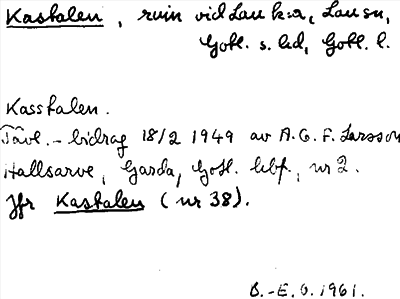 Kastalen, ruin vid Lau k:a, Lau sn,
Gotl. s. hd, Gotl. l.
Kasstalen.
Tävl.-bidrag 18/2 1949 av A.G.F. Larsson
Hallsarve, Garda, Gotl. hbf., nr 2.
Jfr Kastalen (nr 38).
B.-E. O. 1961.